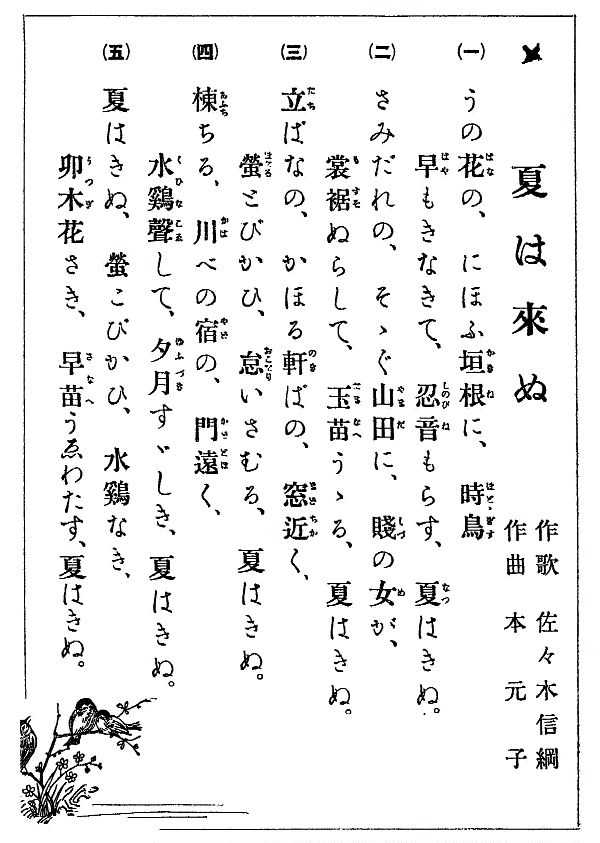 夏は來ぬ
作歌 佐々木信綱
作曲 本元子
(一) うの花の、にほふ垣根に、時鳥
早もきなきて、忍音もらす、夏はきぬ。
(二) さみだれの、そゝぐ山田に、賤の女が、
裳裾ぬらして、玉苗うゝる、夏はきぬ。
(三) 立ばなの、かほる軒ばの、窓近く、
螢とびかひ、怠いさむる、夏はきぬ。
(四) 楝ちる、川べの宿の、門遠く、
水鷄聲して、夕月すゞしき、夏はきぬ。
(五) 夏はきぬ、螢こびかひ、水鷄なき、
卯木花さき、早苗うゑわたす、夏はきぬ。